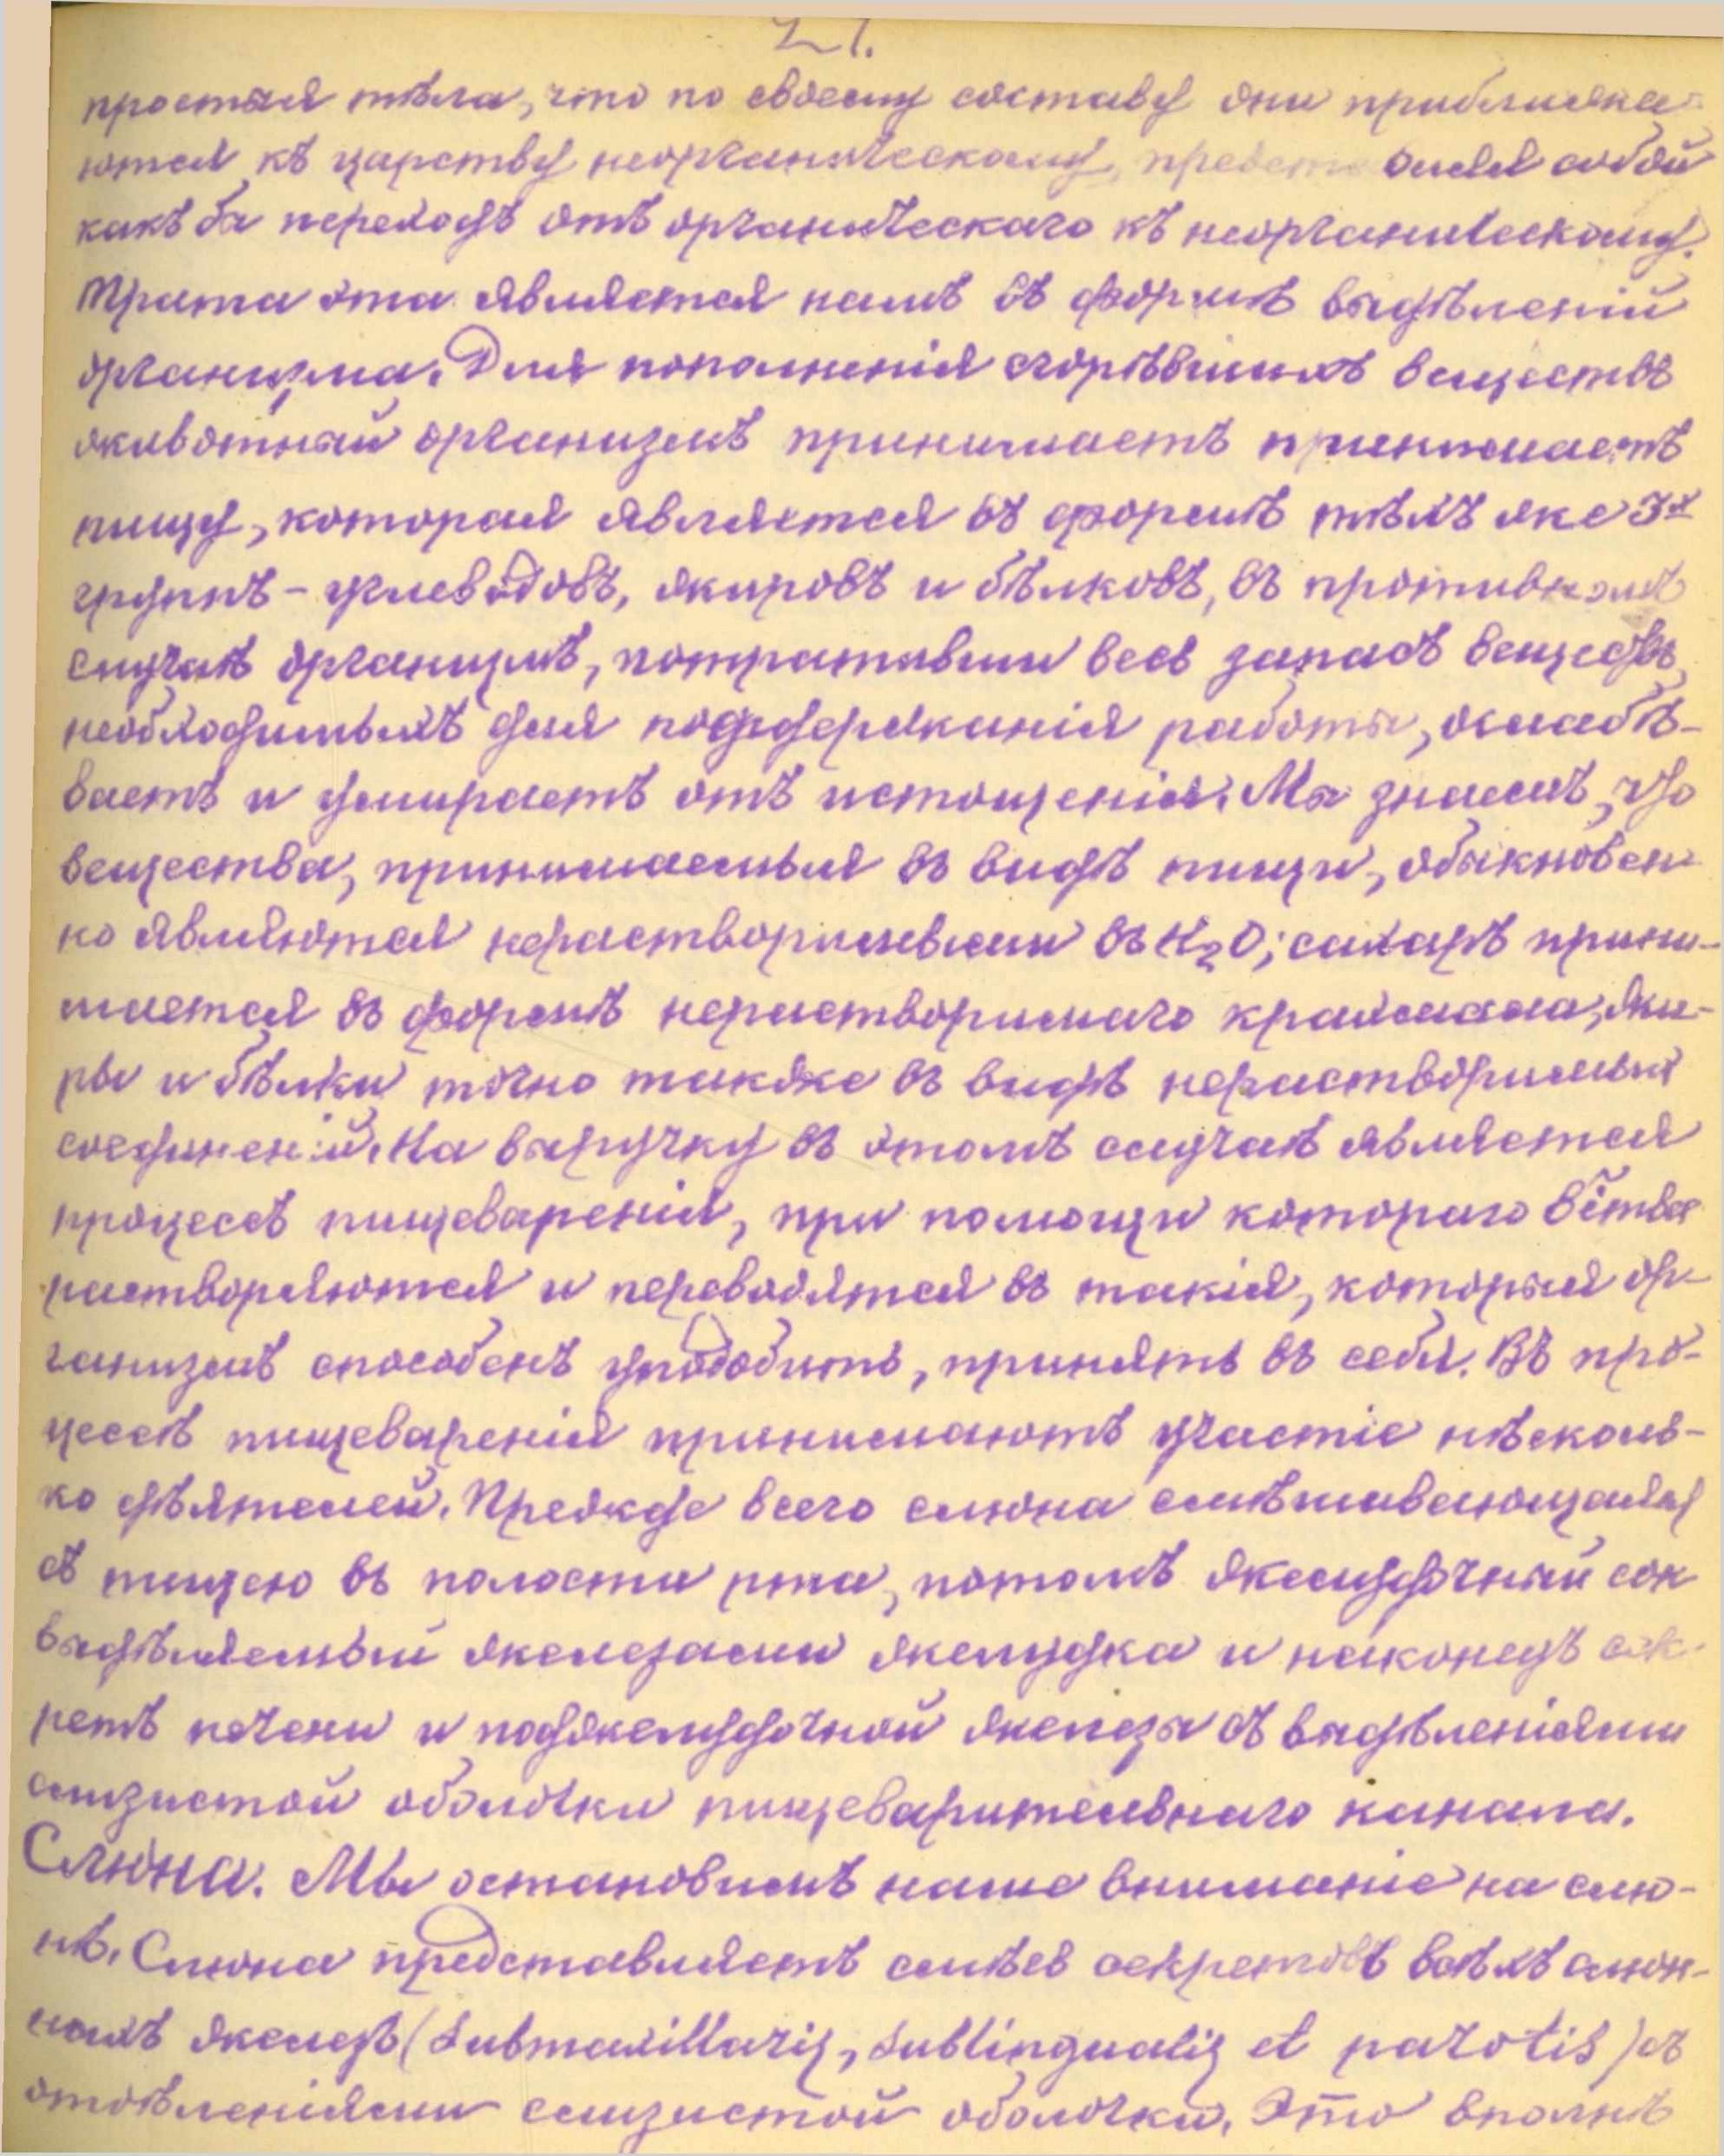 21.
простыя тѣла, что по своему составу они приближа-
ются къ царству неорганическому, представляя собой
какъ бы переходъ отъ органическаго къ неорганическому.
Трата эта является намъ въ формѣ выдѣленій
организма. Для пополненія сгорѣвшихъ веществъ
животный организмъ принимаетъ принимаетъ
пищу, которая является въ формѣ тѣхъ же 3х
группъ - углеводовъ, жировъ и бѣлковъ, въ противномъ
случаѣ организмъ, потративши весь запасъ веществъ,
необходимыхъ для поддержанія работы, ослабѣ-
ваетъ и умираетъ отъ истощенія. Мы знаемъ, что
вещества, принимаемыя въ видѣ пищи, обыкновен
но являются нерастворимыми въ H₂O; сахаръ прини-
мается въ формѣ нерастворимаго крахмала, жи-
ры и бѣлки точно также въ видѣ нерастворимыхъ
соединеній. На выручку въ этомъ случаѣ является
процессъ пищеваренія, при помощи котораго в̃ства
растворяются и переводятся въ такія, которыя ор-
ганизмъ способенъ уподобить, принять въ себя. Въ про-
цессѣ пищеваренія принимаютъ участіе нѣсколь-
ко дѣятелей. Прежде всего слюна смѣшивающаяся
съ пищею въ полости рта, потомъ желудочный сок
выдѣляемый железами желудка и наконецъ сек-
ретъ печени и поджелудочной железы съ выдѣленіями
слизистой оболочки пищеварительнаго канала.
Слюна. Мы остановимъ наше вниманіе на слю-
нѣ. Слюна представляетъ смѣсь секретовъ всѣхъ слюн-
ныхъ железъ (Submaxillaris, Sublingualis et parotis) съ
отдѣленіями слизистой оболочки. Это вполнѣ